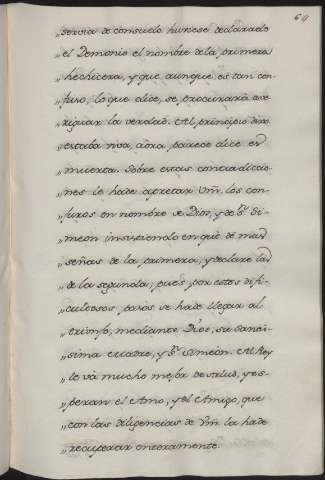 64
„serbia de consuelo huviese declarado
„el Demonio el nombre de la primera
„hechicera, y que aunque es tan con-
„fuso, lo que dice, se procurará ave
„riguar la verdad. Al principio dixo
„estaba viva, aora parece dice es
„muerta. Sobre estas contradiccio-
„nes le hade apretar Vm. los con-
„juros en nombre de Dios, y de Sn. Si-
„meon insistiendo en que dé mas
„señas de la primera, y declare las
„de la segunda; pues por estos difi-
„cultosos pasos se hade llegar al
„triunfo, mediante Dios, su Santi-
„sima Madre, y Sn. Simeon. Al Rey
„le vá mucho mejor de salud, y es-
„peran el Amo, y el Amigo, que
„con las diligencias de Vm. la hade
„recuperar enteramente.